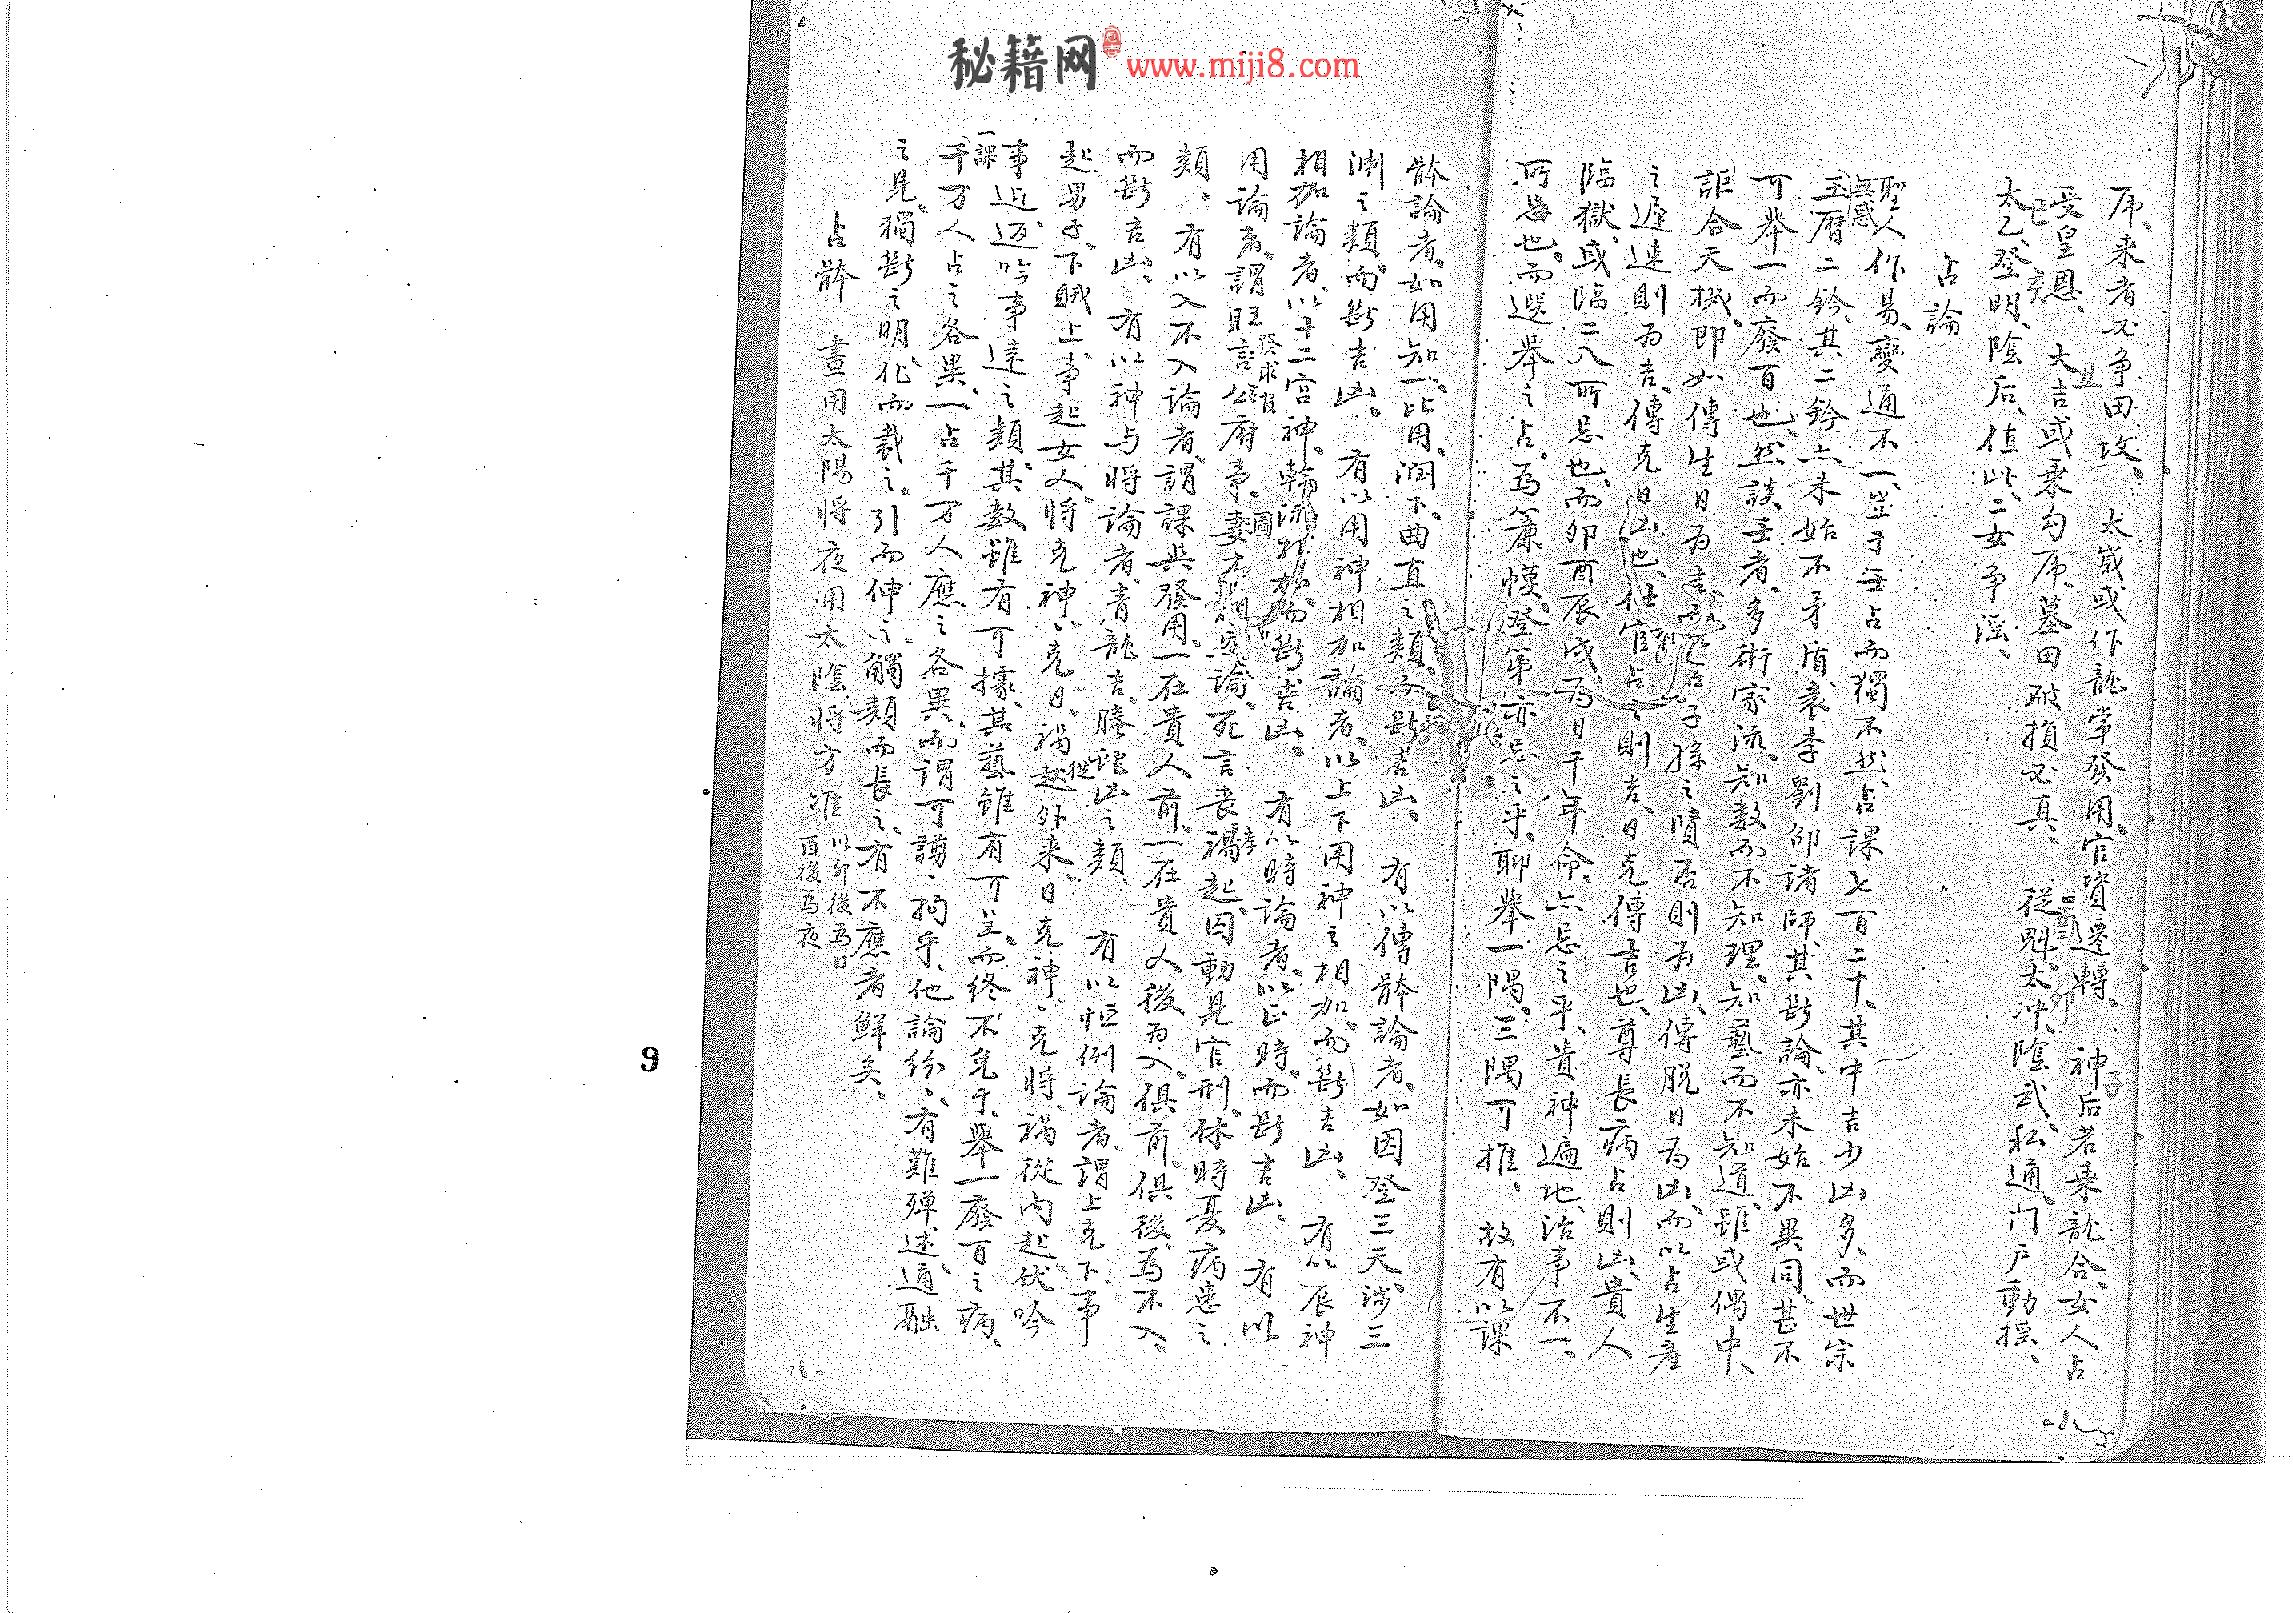 秘籍网 www.miji8.com
虎、来者必争田坟。 太岁或作龍常發用。官資遷轉。 神后若乘龍合。女人占
受皇恩、 大吉或乘勾虎、墓田破損必真。 從魁太冲、陰武、私通、门户動摇、
太乙登明、陰后、值此、二女争淫、
占論
聖人作易、變通不一、豈于壬占而獨不然、占課七百二十、其中吉少凶多、而世宗
壬曆二鈐、其二鈐亦未始不矛盾、袁李劉邵諸師、其斷論、亦未始不異同、甚不
可舉一而廢百也。然談壬者、多術家流、知数而不知理。知藝而不知道、雖或偶中、
詎合天機。即如傳生日為吉、占子孫之賢否則為凶、傳脱日為凶、而以占生産
之遲速則為吉、傳克日凶也、仕官占之則吉、日克傳吉也、尊長病占則凶、貴人
臨獄、或臨二八所忌也、而卯酉辰戌、為日干年命、亦忌之乎、貴神遍地、治事不一、
所忌也。而選舉之占、為簾幙、登第亦忌之乎。聊舉一隅。三隅可推、 故有以課
骵論者。如用知一、比用、潤下、曲直之類、而斷吉凶。 有以傳骵論者、如因登三天、涉三
渊之類、而斷吉凶。 有以用神相加論者、以上下用神之相加、而斷吉凶、 有以辰神
相加論者、以十二宫神、輪流斷吉凶。 有以時論者、以正時、而斷吉凶、 有以
用論者、謂旺言公府事、妻才相因論、死言喪禍起、因動見官刑、休時憂病患之
類、 有以入不入論者、謂課與發用、一在貴人前、一在貴人後為入、俱前、俱後、為不入、
而斷吉凶、 有以神与将論者、青龍吉、螣蛇凶之類 有以恒例論者、謂上克下、事
起男子、下賊上、事起女人、将克神、克日、禍從外来、日克神、克将、禍從内起、伏吟
事近、返吟事遠之類、其数雖有可據、其藝雖有可呈、而終不免于、舉一廢百之病、
一課千万人占之各異、一占千万人應之各異、而謂可謭、拘乎、他論紛、有難殫述、通融
之見、獨斷之明、化而裁之、引而伸之、觸類而長之、有不應者鮮矣、
占骵 晝用太陽将夜用太陰将方准 以卯後為日 酉後為夜
9